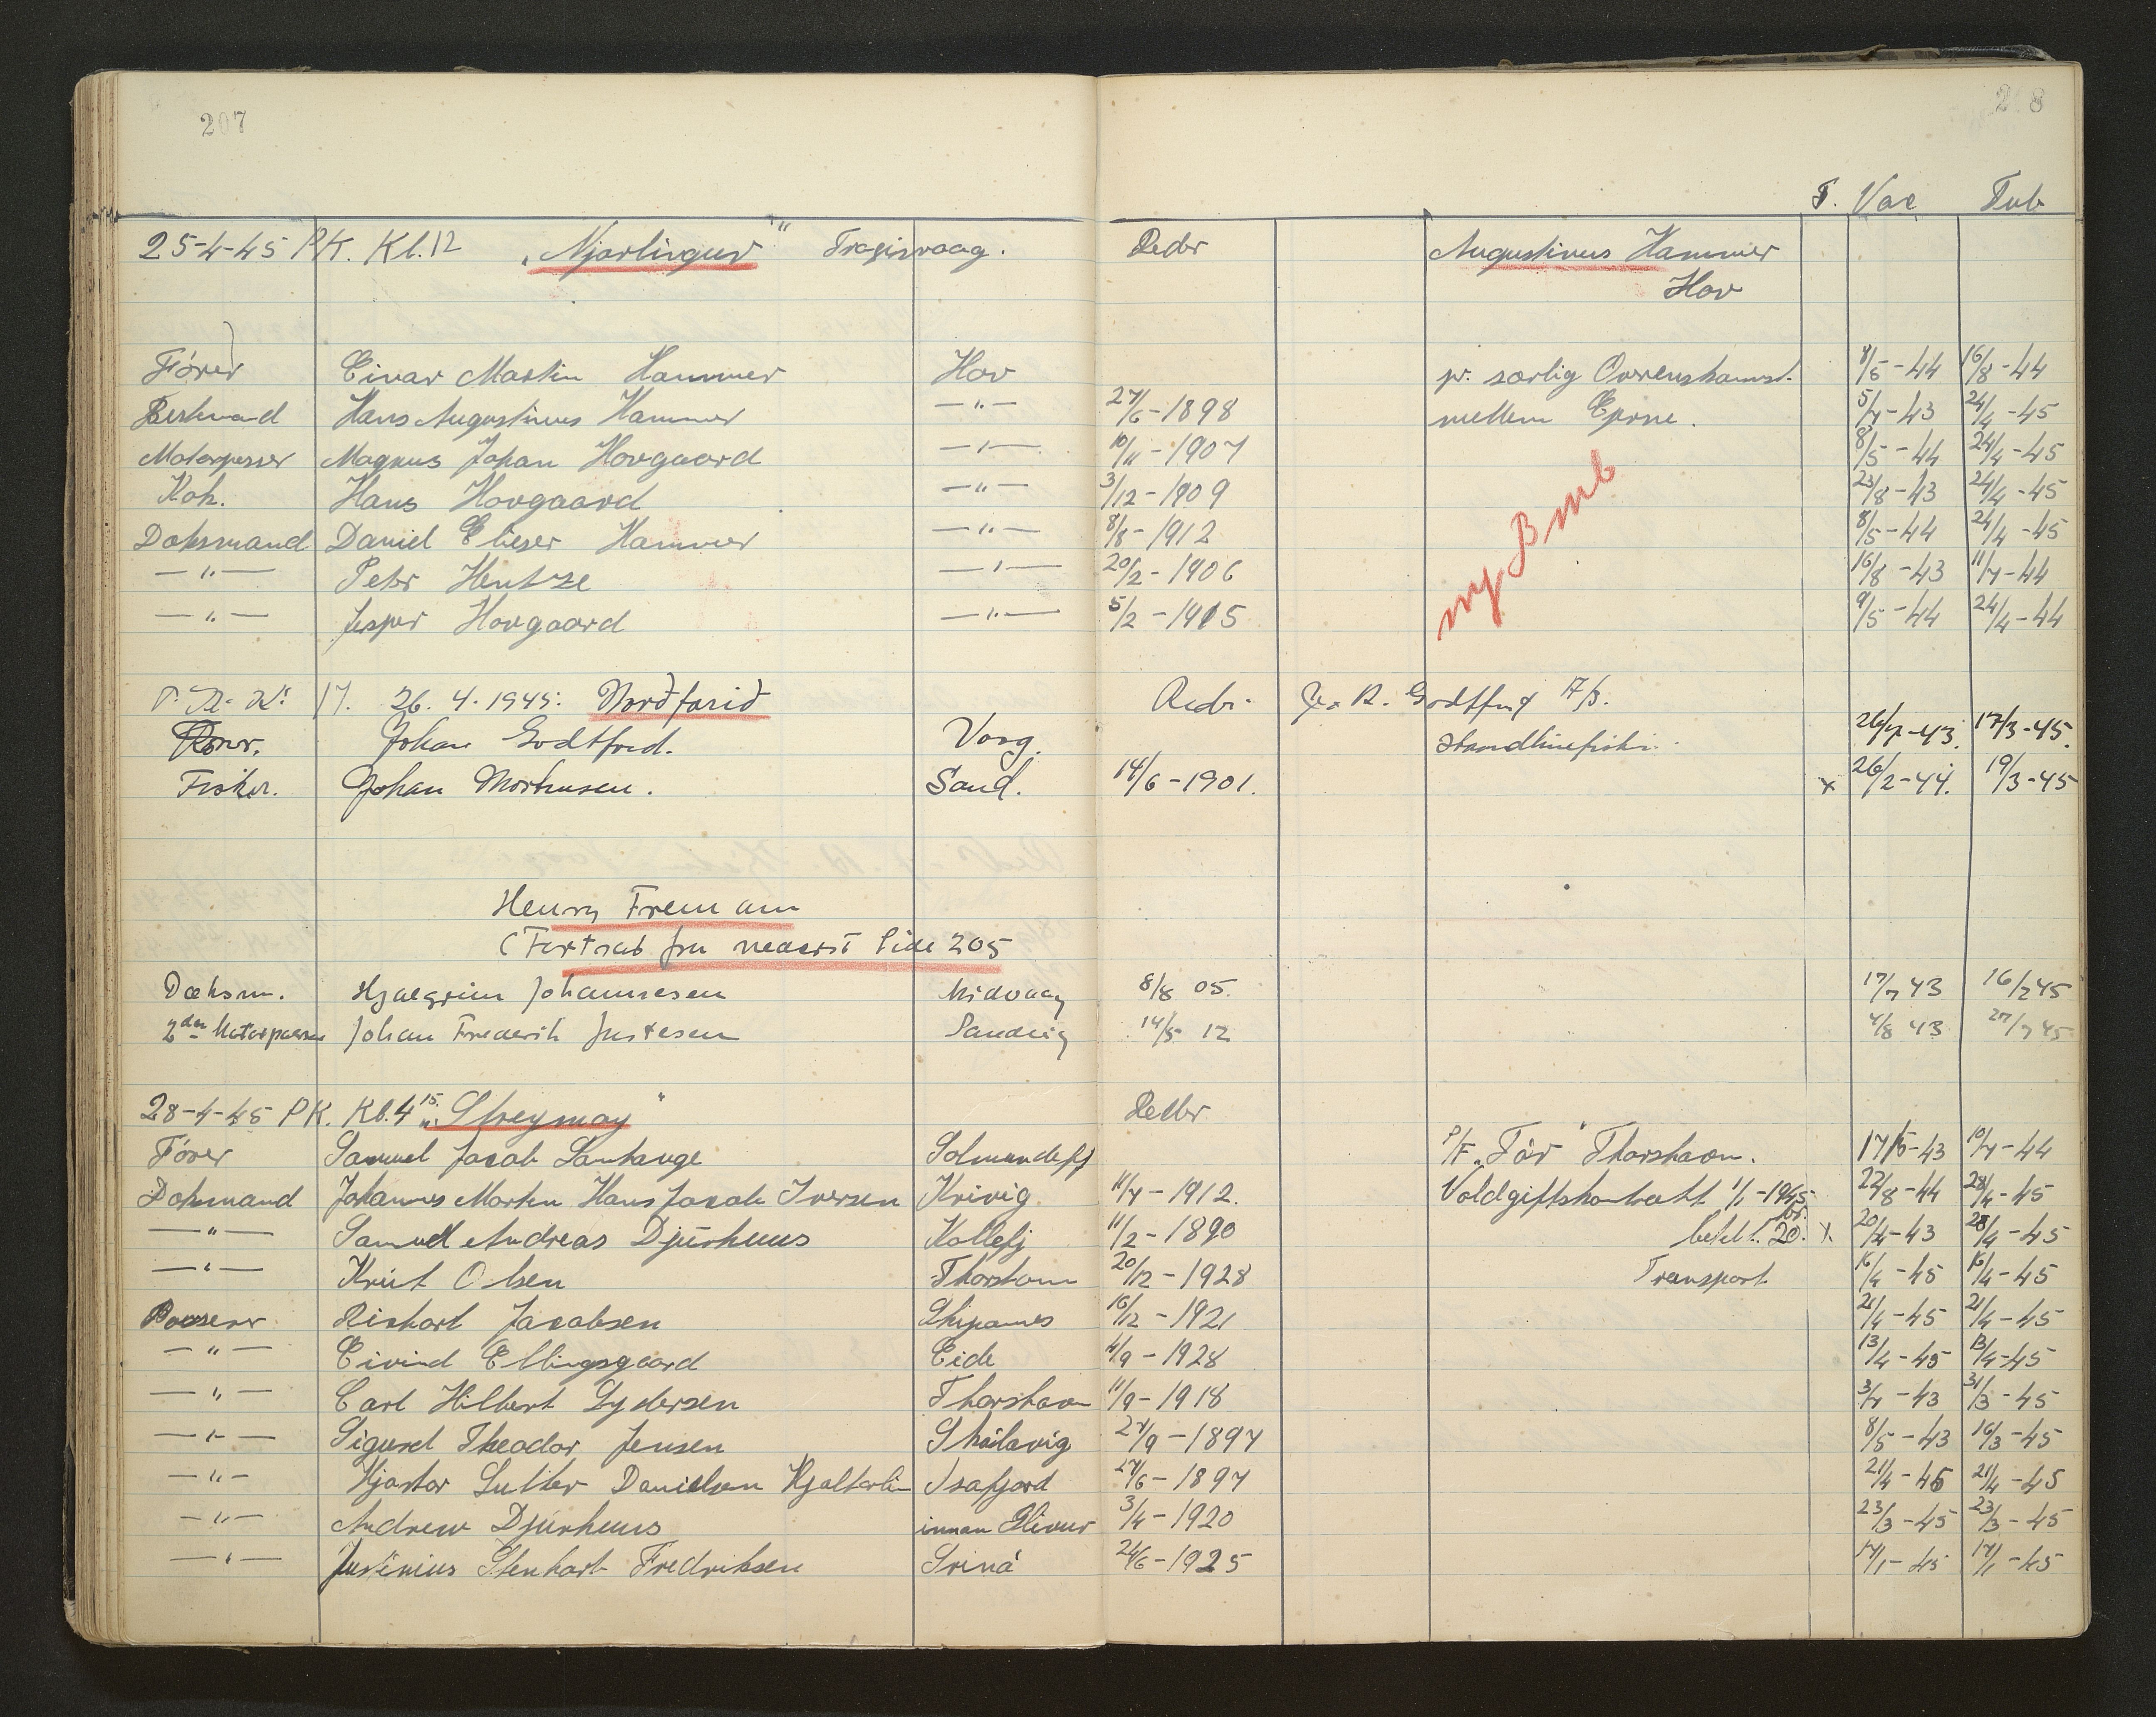 207
2 8
F. Vac Tub
25-4-45 P.K. Kl. 12 „Njarlingur" Tragisvaag. Reder Augustinus Hammer
Hov
Förer Einar Martin Hammer Hov pr. særlig Overenskomst. 8/5-44 16/8-44
Bestmand Hans Augustinus Hammer —"— 27/6-1898 mellem Ejerne. 5/7-43 24/4-45
Motorpasser Magnus Johan Hovgaard —"— 10/11-1907 8/5-44 24/4-45
Kok. Hans Hovgaard —"— 3/12-1909 23/8-43 24/4-45
Dæksmand Daniel Elieser Hammer —"— 8/8-1912 8/5-44 24/4-45
—"— Peter Hentze —"— 20/2-1906 16/8-43 11/7-44
—"— Jesper Hovgaard —"— 5/2-1915 9/5-44 24/4-44
ny B mb
P. K. Kl. 17. 26. 4. 1945: Nordfarid Reder R. Godtfred 17/3.
Johan Godtfred. Vaag. Handlinefiskeri. 26/7-43. 17/3-45.
Fisker. Johan Mortensen. Sand. 14/6-1901. x 26/2-44. 19/3-45
Henry Freemann
(Fortsat fra nederst Side 205
Dæksm. Hjalgrim Johannesen Midvaag 8/8 05. 17/7 43 16/2 45
2den Motorpasser Johan Frederik Justesen Sandvig 14/5 12 4/8 43 27/7 45
28-4-45 P.K. Kl. 4 15. „Streymoy" Reder
Förer Samuel Jacob Lamhauge Solmundefj P/F „Før" Thorshavn. 17/5-43 10/7-44
Dæksmand Johannes Morten Hans Jacob Iversen Kvivig 11/7-1912. Voldgiftskontrakt 1/1-1945 22/8-44 28/4-45
—"— Samuel Andreas Djurhuus Kollefj 11/2-1890 betalt. 20. kr. x 20/4-43 28/4-45
—"— Knút Olsen Thorshavn 20/12-1928 Transport 16/4-45 16/4-45
Passerer Rikhart Jacobsen Skipanes 16/12-1921 21/4-45 21/4-45
—"— Eivind Ellingsgaard Eide 4/9-1928 13/4-45 13/4-45
—"— Carl Hilbert Lydersen Thorshavn 11/9-1918 3/7-43 31/3-45
—"— Sigurd Theodor Jensen Skálavig 27/9-1897 8/5-43 16/3-45
—"— Hjartar Luther Danielsen Hjaltalin Isafjord 27/6-1897 21/4-45 21/4-45
—"— Andrew Djurhuus innan Glivur 3/4-1920 23/3-45 23/3-45
—"— Justinius Stenhart Fredriksen Sviná 24/6-1925 17/1-45 17/1-45